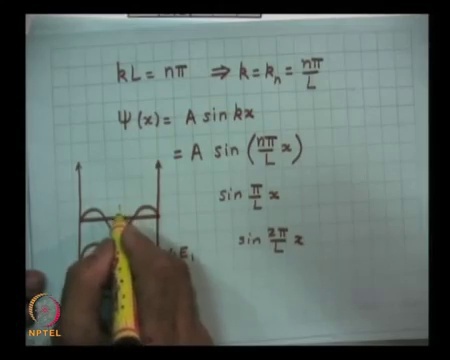 kL = nπ ⇒ k = kₙ = nπ/L
Ψ(x) = A sin kx
= A sin (nπ/L x)
sin π/L x
sin 2π/L x
E₁
NPTEL